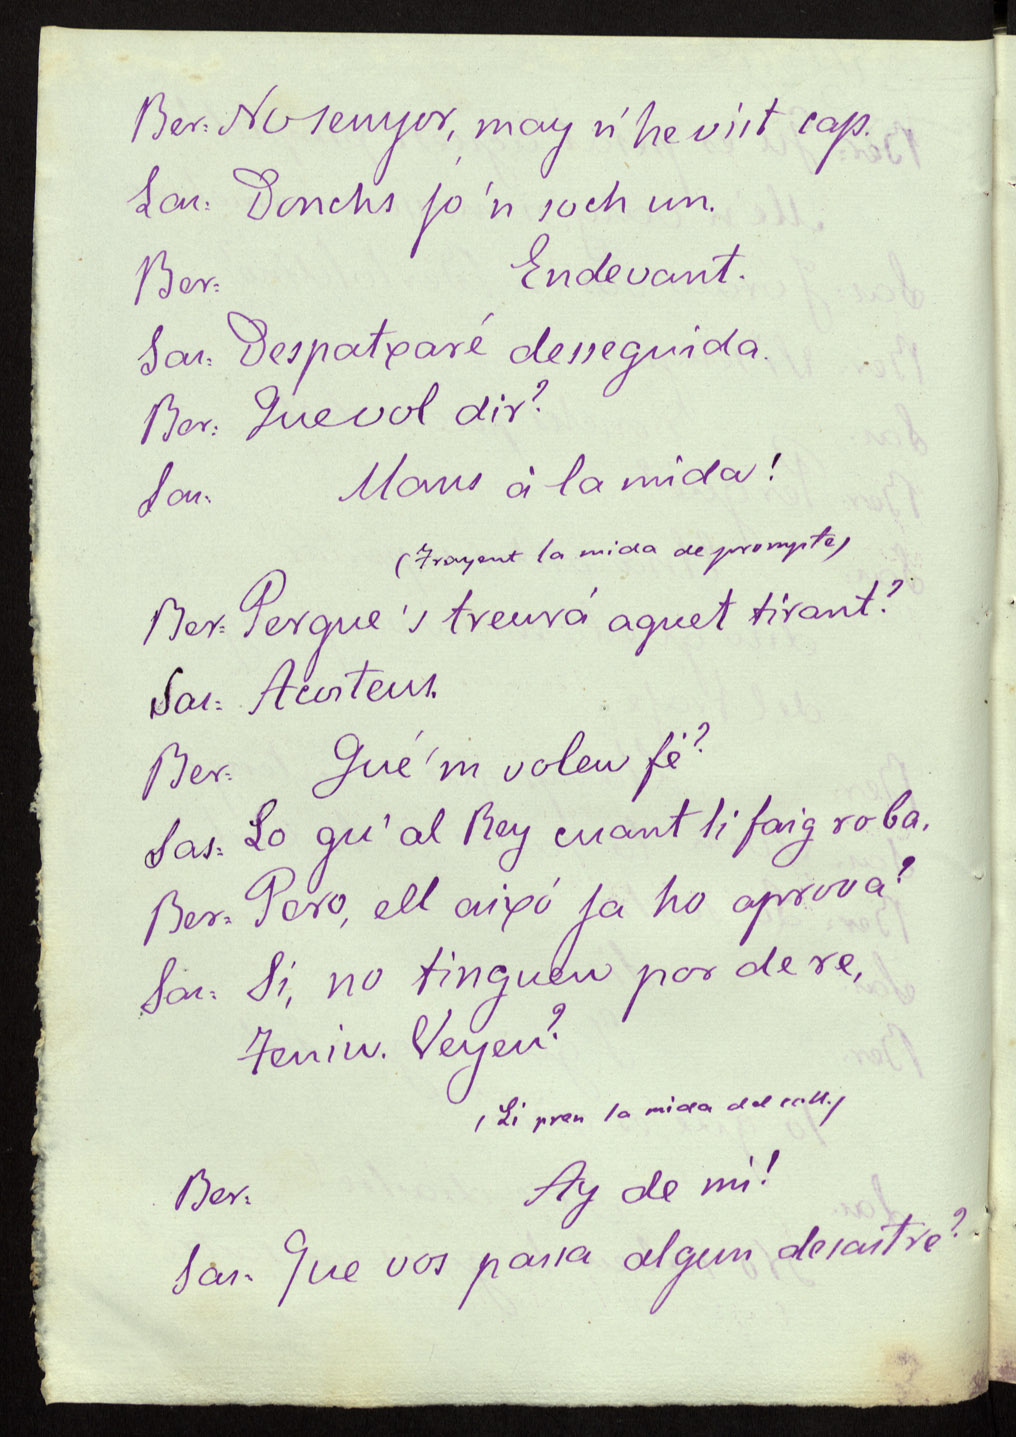 Ber: No senyor, may n'he vist cap.
Sas: Donchs jo'n soch un.
Ber: Endevant.
Sas: Despatxaré desseguida.
Ber: Que vol dir?
Sas: Mans á la mida!
(Trayent la mida de prompte)
Ber: Perque's treurá aquet tirant?
Sas: Acosteus.
Ber: Qué'm voleu fé?
Sas: Lo qu'al Rey cuant li faig roba.
Ber: Pero, ell aixó ja ho aprova?
Sas: Si, no tingueu por de re,
Teniu. Veyeu?
(Li pren la mida del coll.)
Ber: Ay de mi!
Sas: Que vos passa algun desastre?